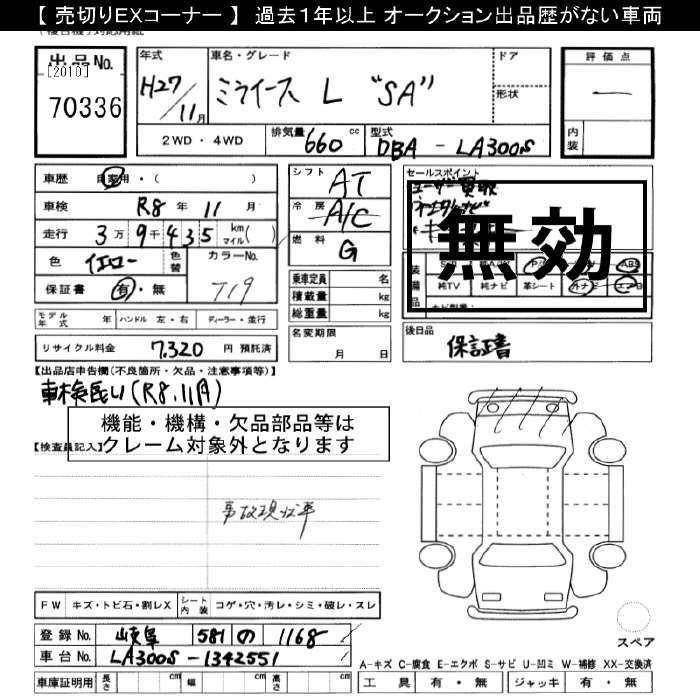 【 売切りEXコーナー 】 過去1年以上 オークション出品歴がない車両
出品No.
[2010]
70336
年式 H27/11月
車名・グレード ミライース L "SA"
ドア
形状
評価点 ー
内装
2WD・4WD 排気量 660 cc 型式 DBA - LA300S
車歴 自家用・( )
車検 R8 年 11 月
走行 3万9千435 km マイル( )
色 イエロー 色替 カラーNo. T19
保証書 有・無
モデル年式 年 ハンドル 左・右 ディーラー・並行
リサイクル料金 7,320 円 預託済
シフト AT
冷房 A/C
燃料 G
乗車定員 名
積載量 kg
総重量 kg
名変期限 月 日
セールスポイント
無効
純TV 純ナビ 革シート 外ナビ エアB
後日品 保証書
【出品店申告欄(不良箇所・欠品・注意事項等)】
車検長い(R8.11月)
機能・機構・欠品部品等は
クレーム対象外となります
【検査員記入】
事故現状車
FW キズ・トビ石・割レX シート内装 コゲ・穴・汚レ・シミ・破レ・スレ
登録No. 岐阜 581 の 1168
車台No. LA300S-1342551
車庫証明用 長さ cm 幅 cm 高さ cm
スペア
A-キズ C-腐食 E-エクボ S-サビ U-凹ミ W-補修 XX-交換済
工具 有・無 ジャッキ 有・無